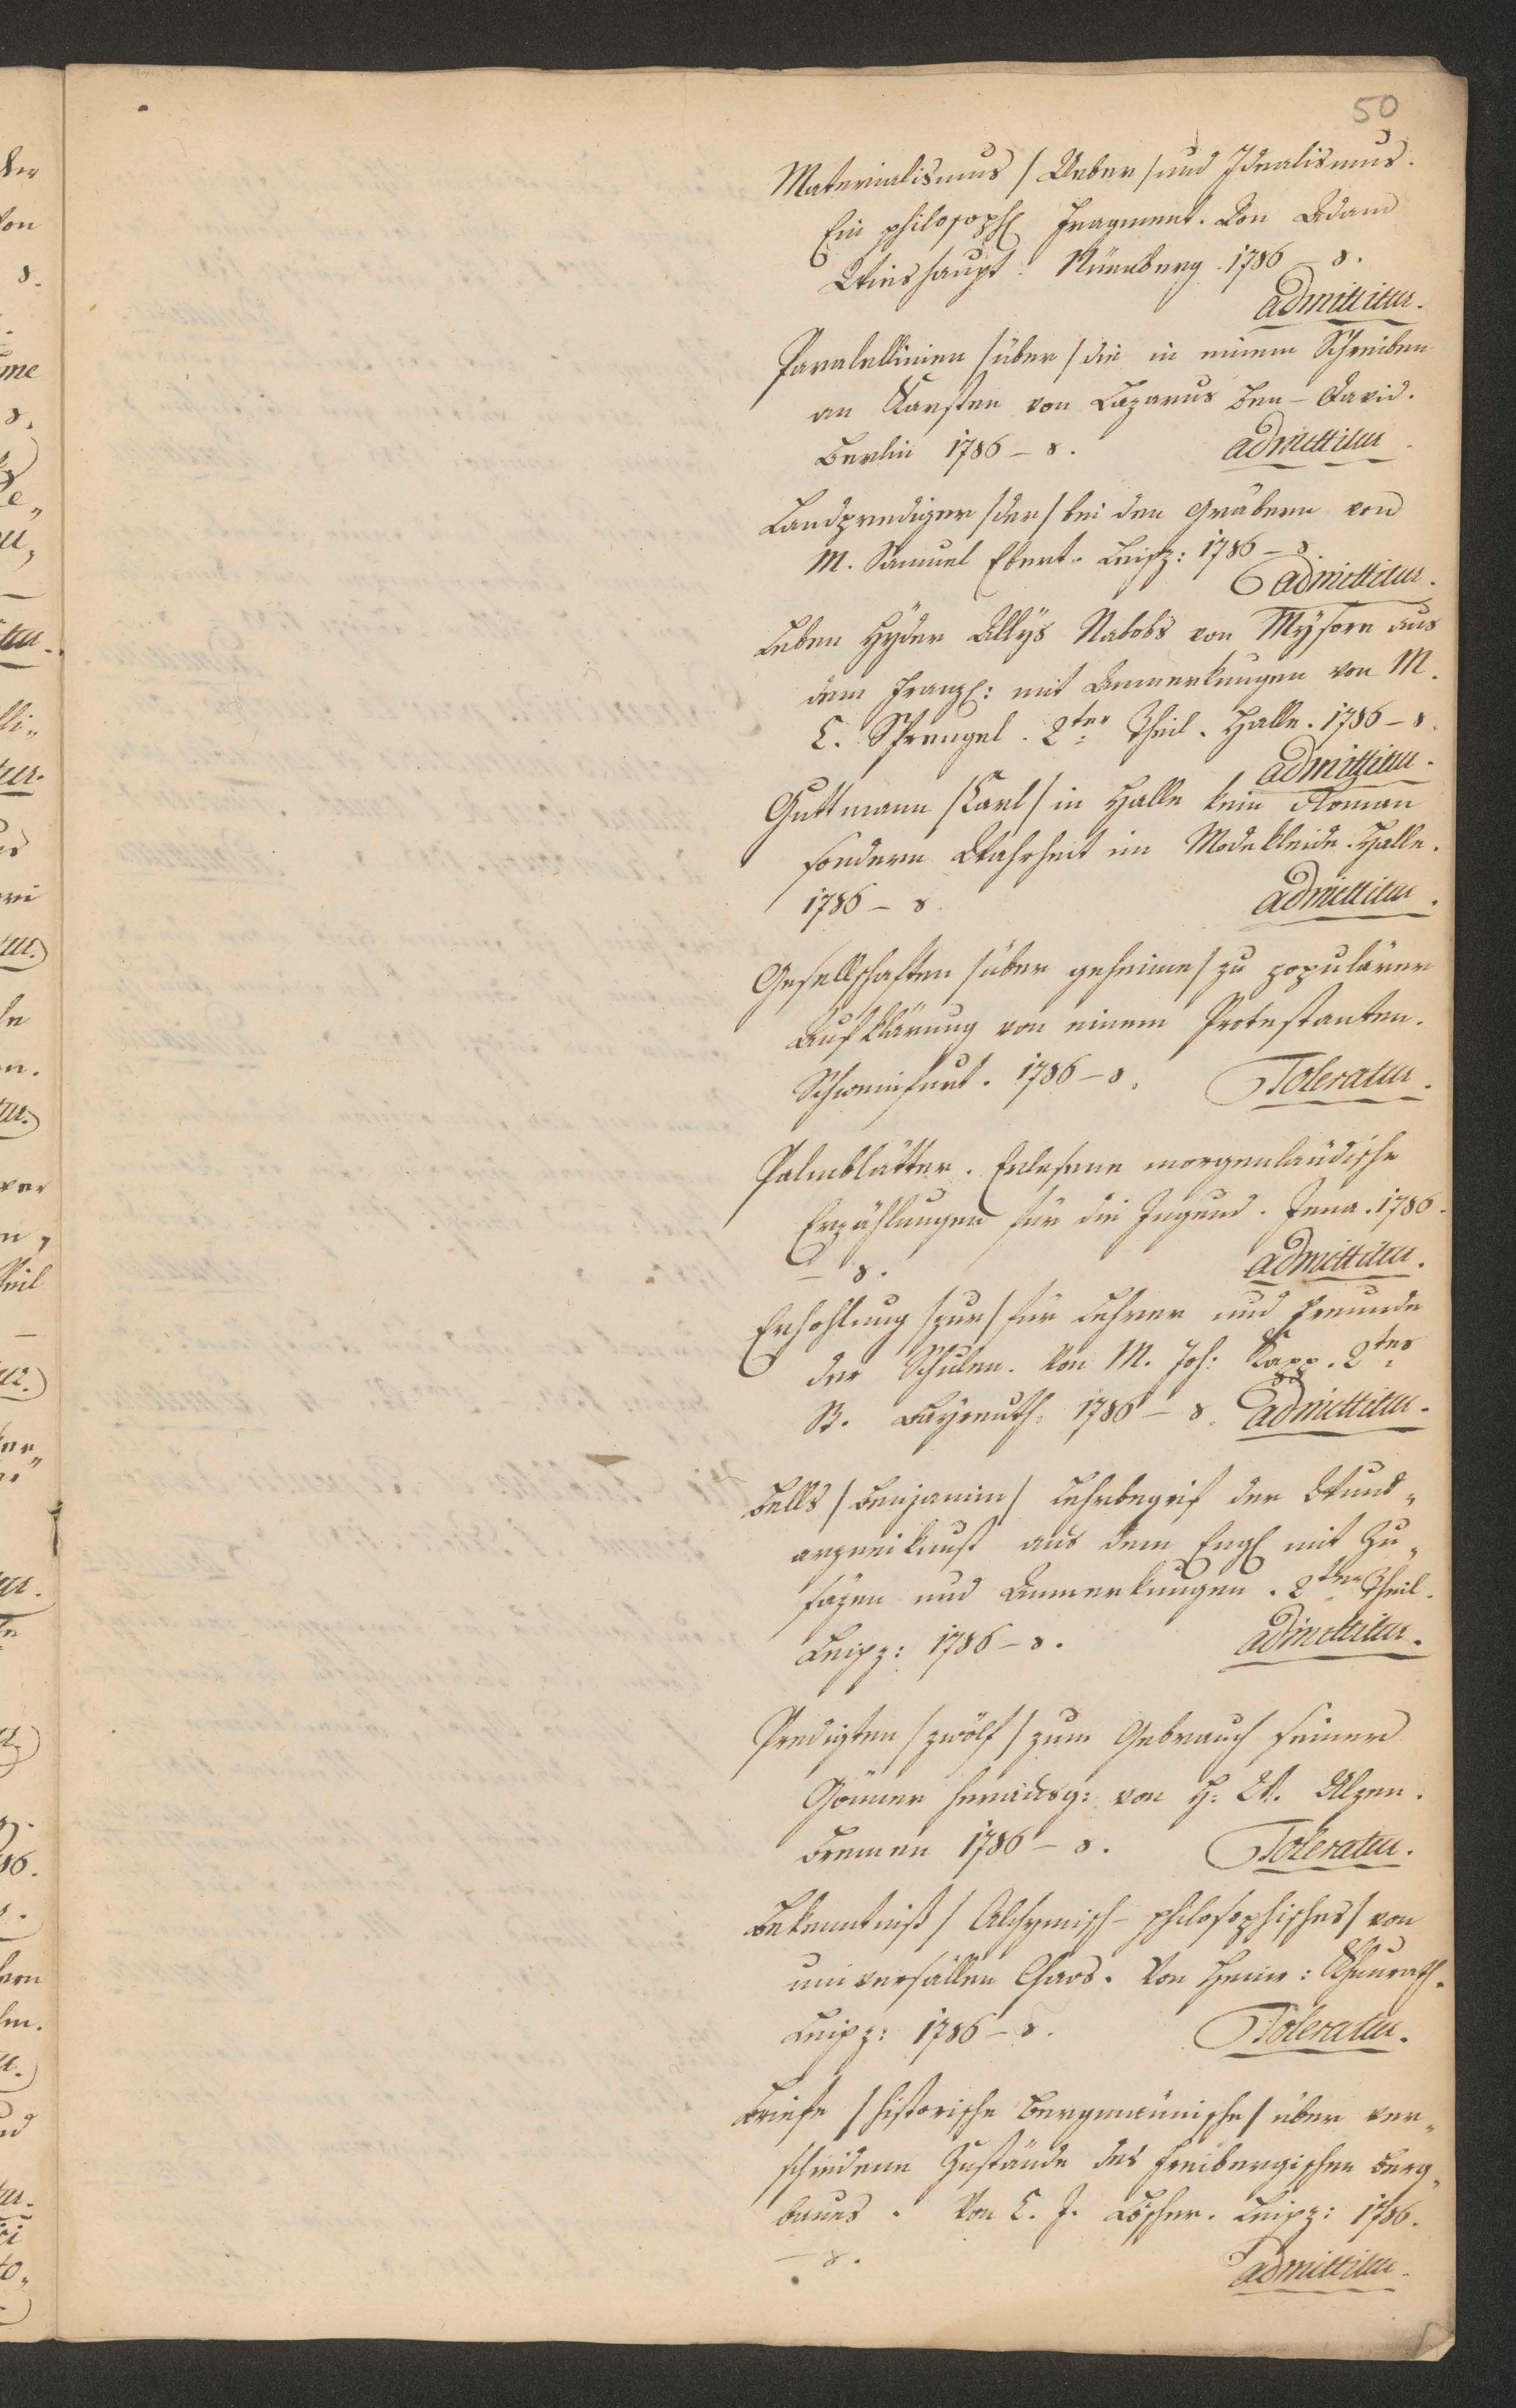 50
Materialismus /Ueber/ und Idealismus.
Ein philosoph. Fragment. Von Adam
Weishaupt. Nürnberg. 1786 – 8.
admittitur.
Paralellinien /über/ die in einem Schreiben
an Karsten von Lazarus Ben-David.
Berlin 1786 – 8. admittitur
Landprediger /der/ bei den Gräbern von
M. Samuel Ebert. Leipz: 1786 – 8.
admittitur.
Leben Hyder Allys Nabobs von Mysore aus
dem Franz: mit Anmerkungen von M.
C. Sprengel. 2ter Theil. Halle. 1786 – 8.
admittitur.
Guttmann /Carl/ in Halle kein Roman
sondern Wahrheit im Modekleide. Halle.
1786 – 8. admittitur.
Gesellschaften /über geheime/ zu populärer
Aufklärung von einem Protestanten.
Schweinfurt. 1786 – 8. Toleratur.
Palmblätter. Erlesene morgenländische
Erzählungen für die Jugend. Jena. 1786.
– 8. admittitur.
Erhohlung /zur/ für Lehrer und Freunde
der Schulen. Von M. Joh: Kapp. 2tes
B. Bayreuth. 1786 – 8. admittitur.
Bells /Benjamin/ Lehrbegrif der Wund„
arzneikunst aus dem Engl mit Zu„
säzen und Anmerkungen. 2ter Theil.
Leipz: 1786 – 8. admittitur.
Predigten /zwölf/ zum Gebrauch seiner
Gönner herausg: von H: W. Alzen.
Bremen 1786 – 8. Toleratur.
Bekenntniß /Alchymisch-philosophisches/ von
universällen Chaos. Von Heinr: Khunrath.
Leipz: 1786 – 8. Toleratur.
Briefe /historische bergmännische/ über ver„
schiedene Zustände des Freibergischen Berg„
baues. Von C. J. Löscher. Leipz: 1786.
– 8. admittitur.